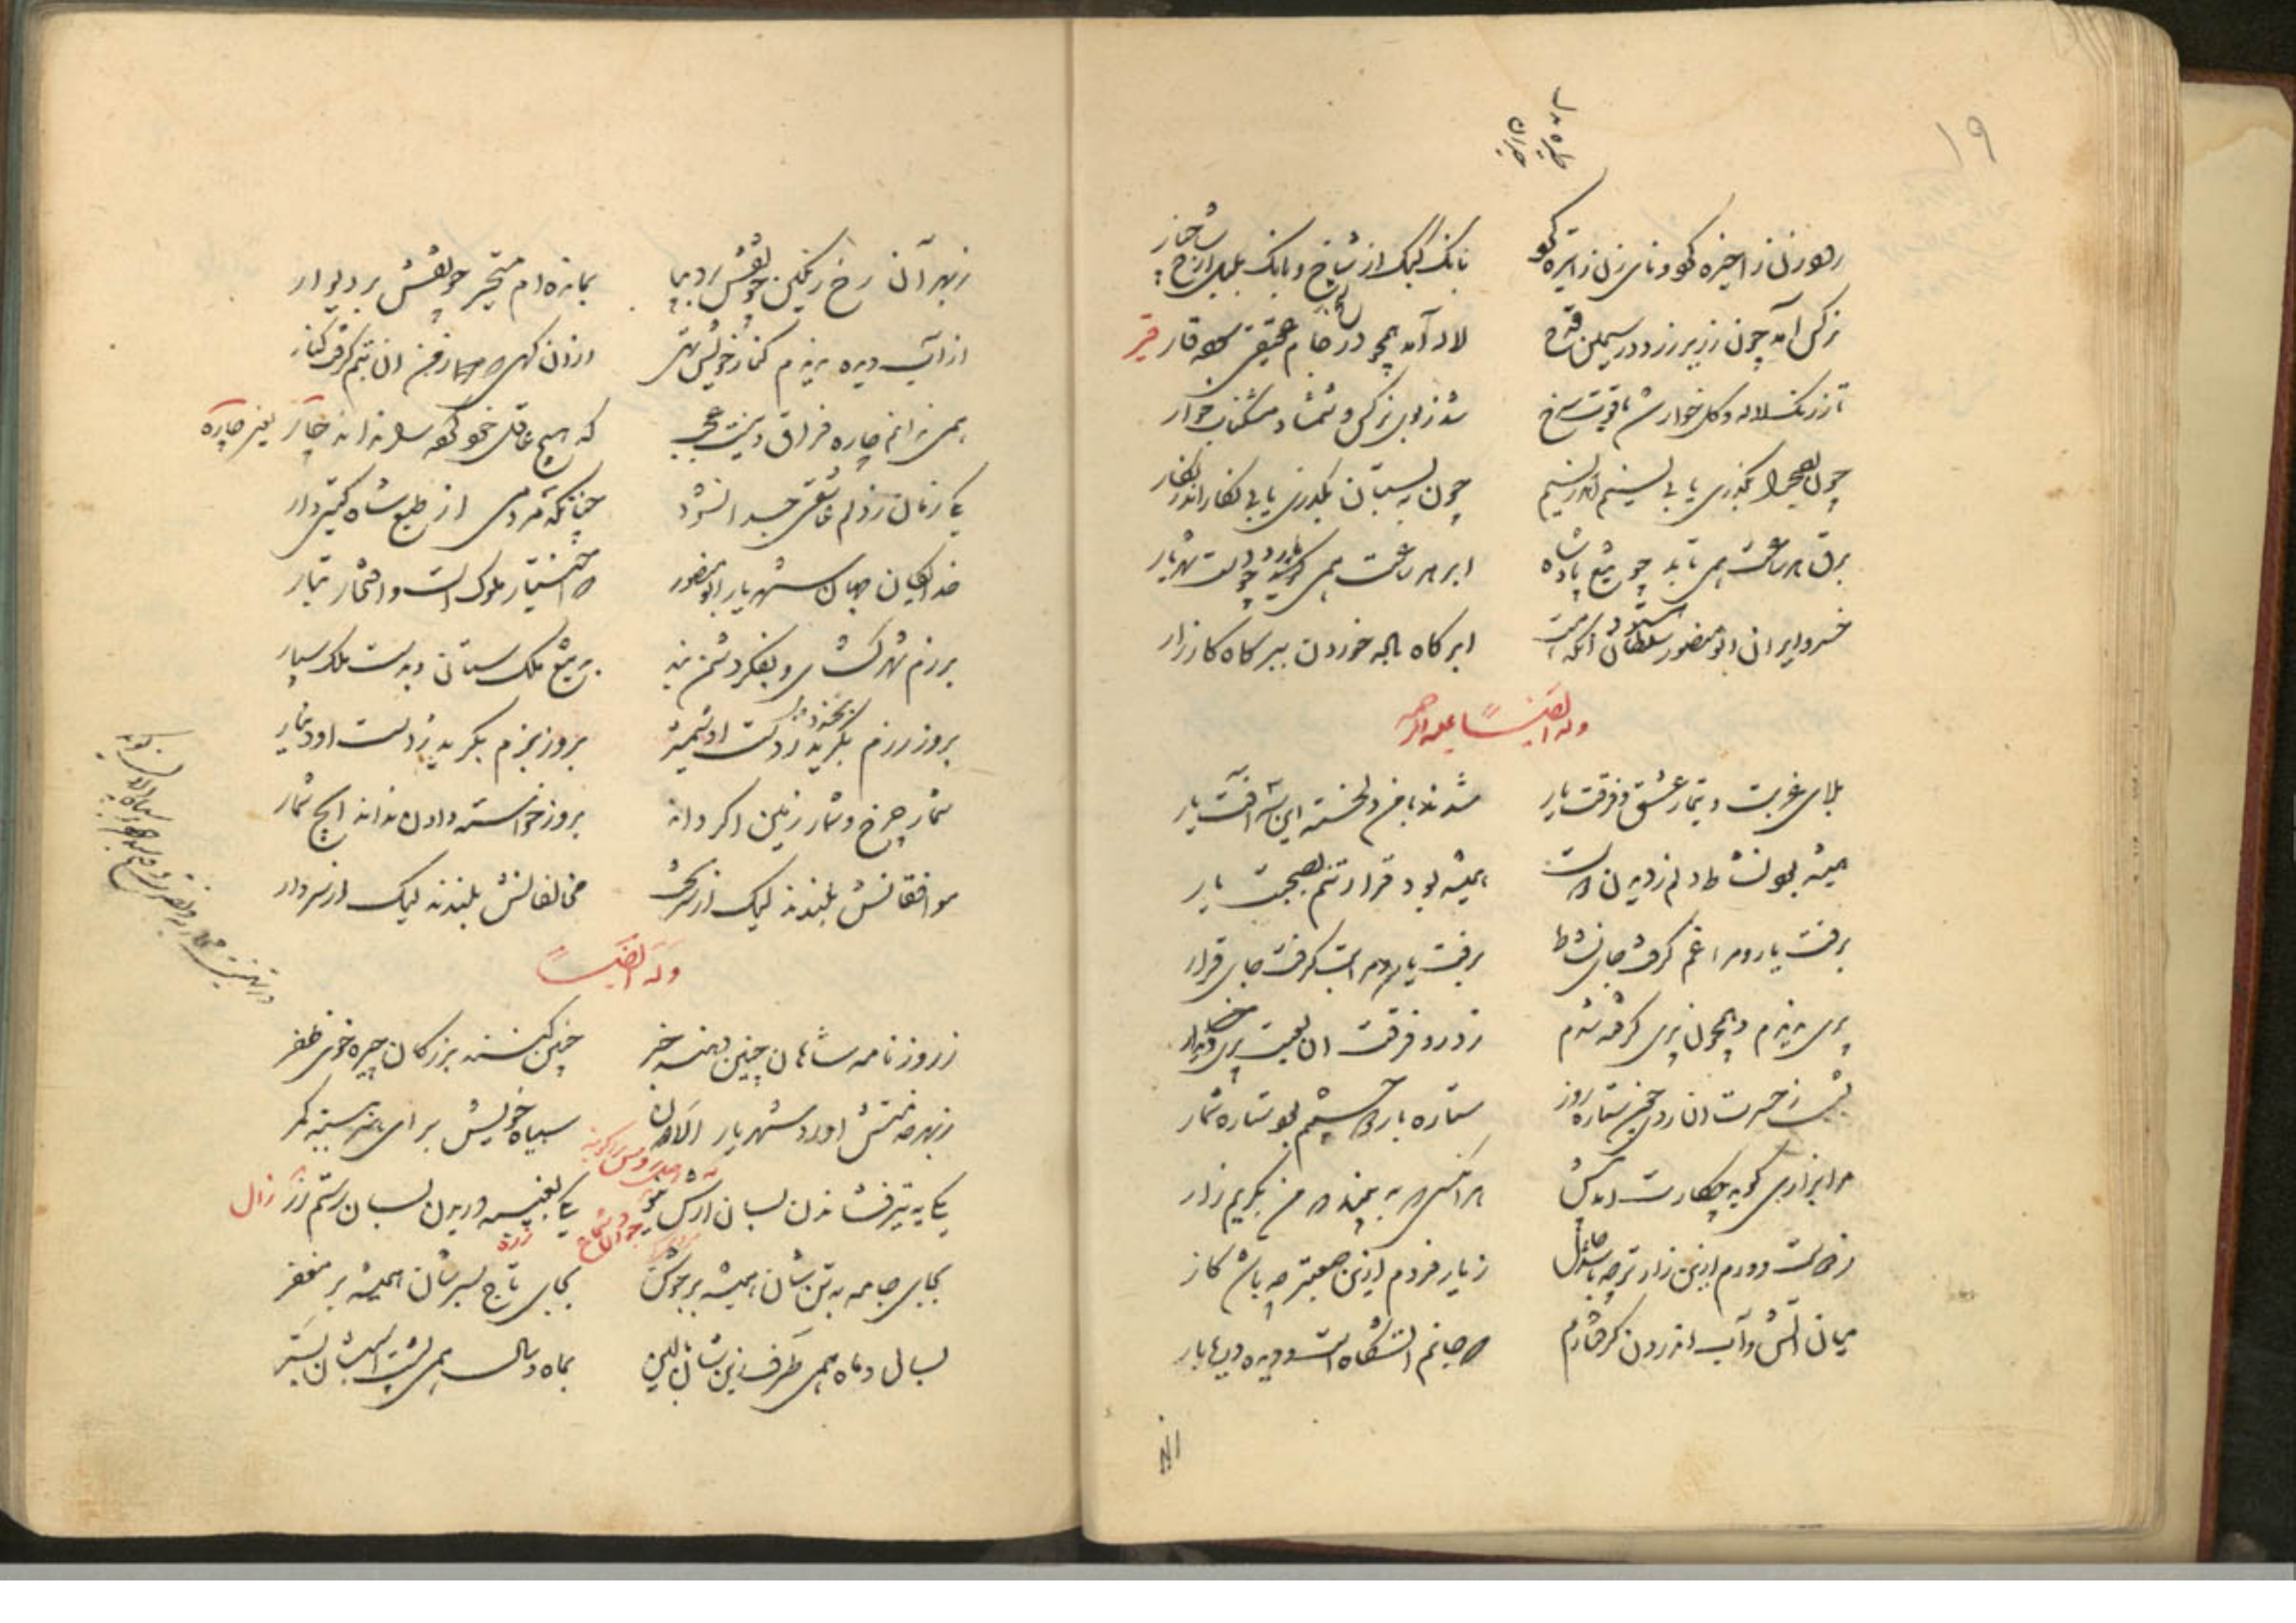 ۱۹
نرگس آمد چون زریر زرد در سیمین قدح لاله آمد همچو در جام عقیقی قار قیر
تا ز رنگ لاله و گل خوار شد یاقوت سرخ شد ز بوی نرگس و شمشاد مشکناب خوار
چون بصحرا بگذری یابی نسیم اندر نسیم چون به بستان بگذری یابی نگار اندر نگار
برق هر ساعت همی تابد چو تیغ پادشاه ابر هر ساعت همی چو دست شهریار
خسرو ایران ابو منصور سلطان آنکه هست ابر گاه باده خوردن ببر گاه کارزار
وله ایضاً علیه الرحمه
بلای غربت و تیمار عشق و فرقت یار شدند با من دلخسته این سه آفت یار
همیشه بود نشاط دلم ز دیدن دوست همیشه بود قرار تنم بصحبت یار
برفت یار و مرا غم گرفت جای نشاط برفت یار و مرا تب گرفت جای قرار
پری ندیدم و همچون پری گرفته شدم ز درد فرقت آن لعبت پری دیدار
بشب ز حسرت آن روز ستاره بارد چشمم بود ستاره شمار
مرا بزاری گوید چکارت آمد پیش هر آنکسی که ببیند که من بگریم زار
ز دوست دورم ازین زارتر چه باشد حال ز یار فردم ازین صعبتر چه باشد کار
میان آتش و آب اندرون گرفتارم که جانم آتشگاه است و دیده دریابار
زبهر آن رخ رنگین چو نقش بر دیبا بمانده ام متحیر چو نقش بر دیوار
از آب دیده ندیدم کنار خویش تهی از آن گهی که از من آن بتم گرفت کنار
همی ندانم چاره فراق و نیست عجب که هیچ عاقل نداند چار یعنی چاره
یک زمان ز دلم عاشقی جدا نشود چنانکه مردمی از طبع شاه گیتی دار
خدایگان جهان شهریار ابو منصور که اختیار ملوک است و افتخار تبار
برزم شهر گشای و بفکر دشمن بند به تیغ ملک ستانی و بدست ملک سپار
بروز رزم بگرید ز دست او شمشیر بروز بزم بگرید ز دست او دینار
شمار چرخ و شمار زمین اگر داند بروز خواسته دادن نداند ایچ شمار
موافقانش بلندند لیک از سر تخت مخالفانش بلندند لیک از سر دار
وله ایضاً
ز روزنامه شاهان چنین دهند خبر چنین کنند بزرگان چیره خوی ظفر
ز بهر خدمتش آورد شهریار الان سپاه خویش برای هنر ببسته کمر
یکی به تیر فشاندن بسان آرش یکی بغیبه دریدن بسان رستم زر زال
زره
بجای جامه به تن شان همیشه بر جوشن بجای تاج بسرشان همیشه بر مغفر
بسال و ماه همی طرف زین شان بالین بماه و سال همی پشت اسبشان بستر